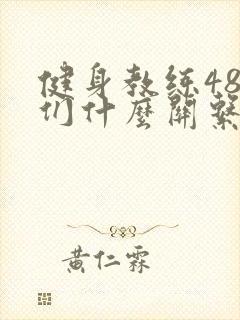 健身教练48
们什麼關繫
黄仁霖